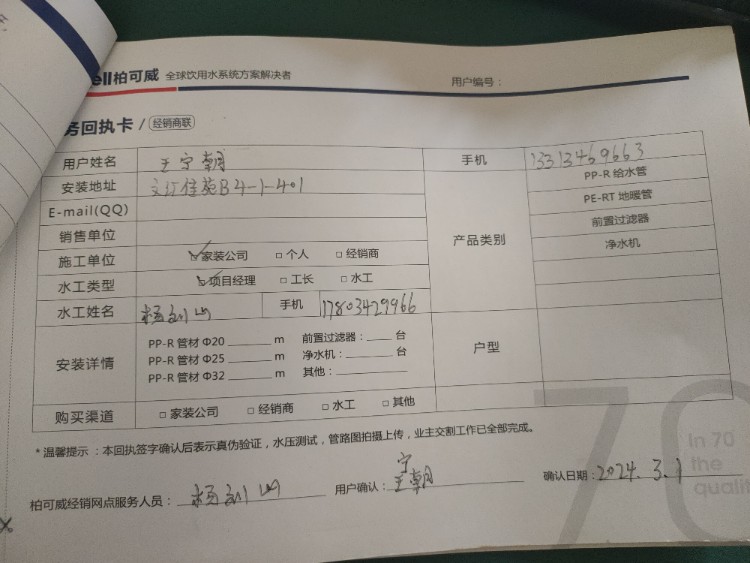 ell柏可威 全球饮用水系统方案解决者 用户编号：
务回执卡 / 经销商联
用户姓名 王宁朝 手机 13313469663
安装地址 文汀佳苑B4-1-401 PP-R 给水管
E-mail(QQ) PE-RT 地暖管
销售单位 产品类别 前置过滤器
施工单位 ☑家装公司 □个人 □经销商 净水机
水工类型 ☑项目经理 □工长 □水工
水工姓名 杨刘山 手机 17803429966
安装详情 PP-R 管材 Φ20 ______ m 前置过滤器：____ 台 户型
PP-R 管材 Φ25 ______ m 净水机：____ 台
PP-R 管材 Φ32 ______ m 其他：______
购买渠道 □家装公司 □经销商 □水工 □其他
*温馨提示：本回执签字确认后表示真伪验证，水压测试，管路图拍摄上传，业主交割工作已全部完成。
柏可威经销网点服务人员：杨刘山 用户确认：王宁朝 确认日期：2024.3.1
70
In 70
the
qualit